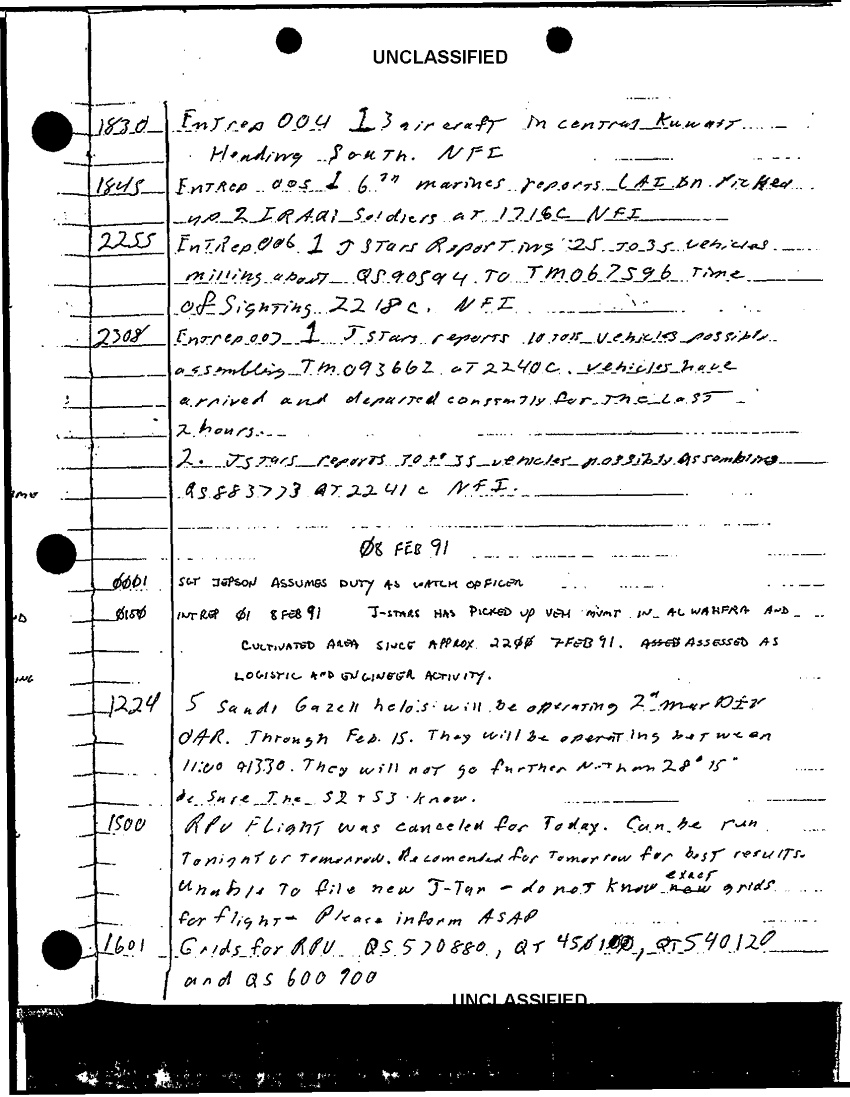 UNCLASSIFIED
1830 EnTrep 004 1 3 aircraft in central Kuwait
Heading South. NFI
1845 EnTRep 005 1 6th marines reports LAI Bn Picked
up 2 IRAQI Soldiers at 1716C NFI
2255 EnTRep 006 1 JSTars RepoRTing 25 To 35 vehicles
milling about QS90594 To TM067596 Time
of Sighting 2218c. NFI
2308 Entrep 007 1 JSTars reports vehicles possibly
assembling TM093662 at 2240C. vehicles have
arrived and departed constantly for The LaST
2 hours.
2. JSTars reports 35 vehicles possibly Assembling
QS883773 AT 2241c NFI.
Ø8 FEB 91
ØØØ1 SGT JEPSON ASSUMES DUTY AS WATCH OFFICER
Ø15Ø INTREP Ø1 8 FEB 91 J-STARS HAS PICKED UP VEH MVMT IN AL WAHFRA AND
CULTIVATED AREA SINCE APPROX. 22ØØ 7 FEB 91. ASSESSED AS
LOGISTIC AND ENGINEER ACTIVITY.
1224 5 Saudi Gazell helo's will be operating 2nd Mar DIV
OAR. Through Feb. 15. They will be operating between
11:00 1330. They will not go further N. Than 28° 15"
be Sure The S2 + S3 know.
1500 RPV FLighT was canceled for Today. Can be run
Tonight or Tomorrow. Recomended for Tomorrow for best results.
Unable To file new J-Tar - do not know exact grids
for flight - Please inform ASAP
1601 Grids for RPV QS570880, QT 450100, QT540120
and QS 600 900
UNCLASSIFIED